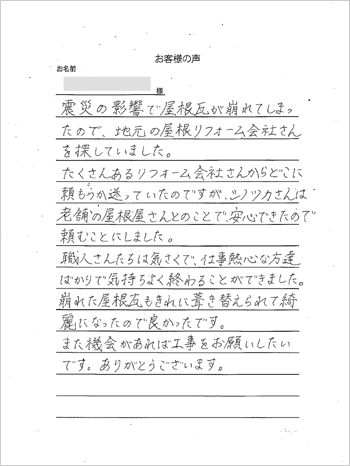 お客様の声
お名前
様
震災の影響で屋根瓦が崩れてしまっ
たので、地元の屋根リフォーム会社さん
を探していました。
たくさんあるリフォーム会社さんからどこに
頼もうか迷っていたのですが、シノツカさんは
老舗の屋根屋さんとのことで、安心できたので
頼むことにしました。
職人さんたちは気さくで、仕事熱心な方達
ばかりで気持ちよく終わることができました。
崩れた屋根瓦もきれに葺き替えられて綺
麗になったので良かったです。
また機会があれば工事をお願いしたい
です。ありがとうございます。